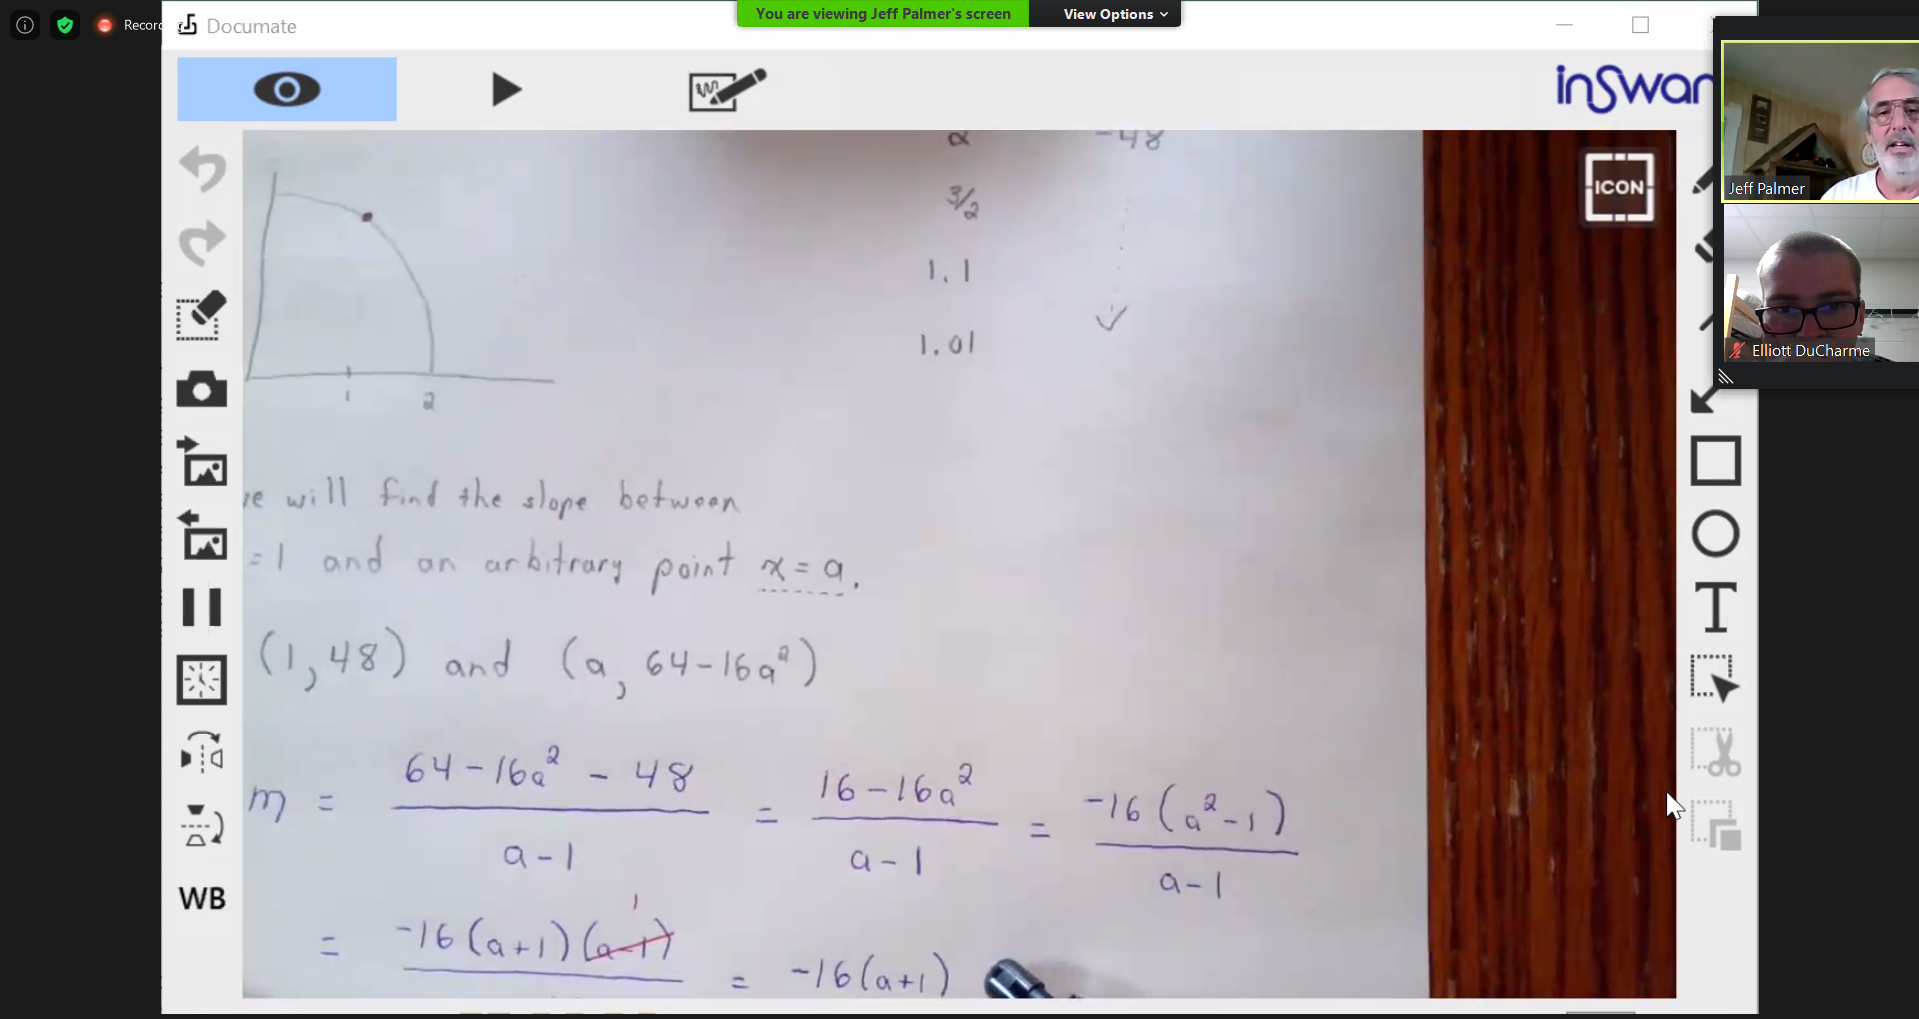 You are viewing Jeff Palmer's screen
View Options
Recor
Documate
inSwan
ICON
Jeff Palmer
Elliott DuCharme
2 -48
3/2
1.1
1.01
1 2
we will find the slope between
=1 and an arbitrary point x = a.
(1, 48) and (a, 64-16a²)
m = (64-16a² - 48)/(a-1) = (16-16a²)/(a-1) = -16(a²-1)/(a-1)
1
= -16(a+1)(a-1) = -16(a+1)
T
WB